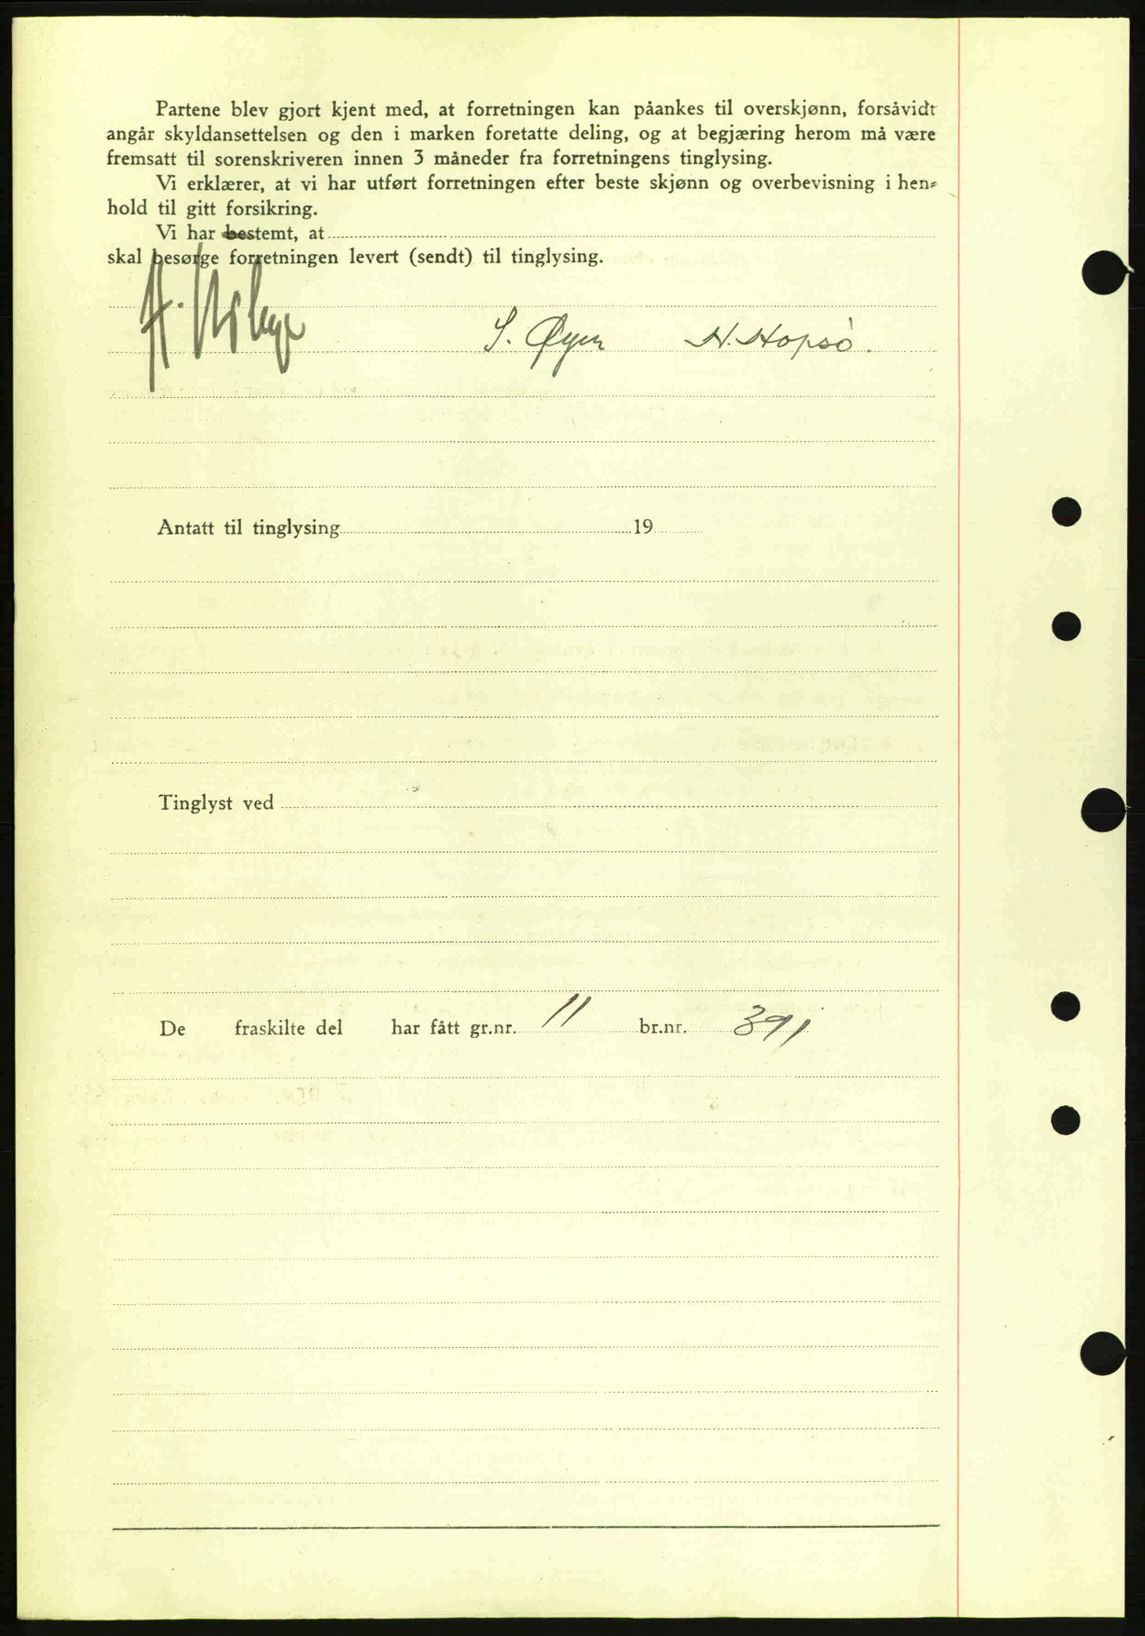 Partene blev gjort kjent med, at forretningen kan påankes til overskjønn, forsåvidt
angår skyldansettelsen og den i marken foretatte deling, og at begjæring herom må være
fremsatt til sorenskriveren innen 3 måneder fra forretningens tinglysing.
Vi erklærer, at vi har utført forretningen efter beste skjønn og overbevisning i hen-
hold til gitt forsikring.
Vi har bestemt, at
skal besørge forretningen levert (sendt) til tinglysing.
S. Øyen H. Hopsø.
Antatt til tinglysing 19
Tinglyst ved
De fraskilte del har fått gr.nr. 11 br.nr. 391